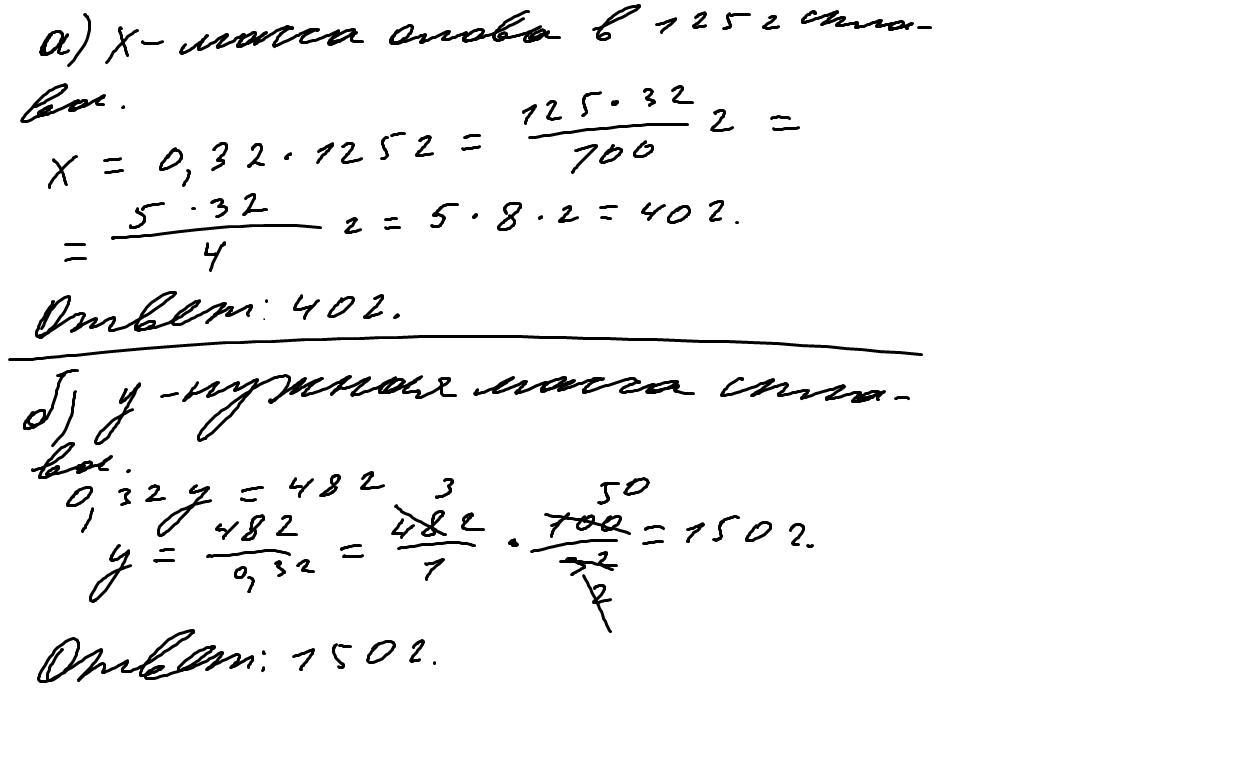 а) x - масса олова в 125 г спла-
ва.
x = 0,32 · 125 г = \frac{125 · 32}{100} г =
= \frac{5 · 32}{4} г = 5 · 8 · г = 40 г.
Ответ: 40 г.
б) y - нужная масса спла-
ва.
0,32 y = 48 г
y = \frac{48 г}{0,32} = \frac{48 г}{1} · \frac{100}{32} = 150 г.
3 50
2
Ответ: 150 г.